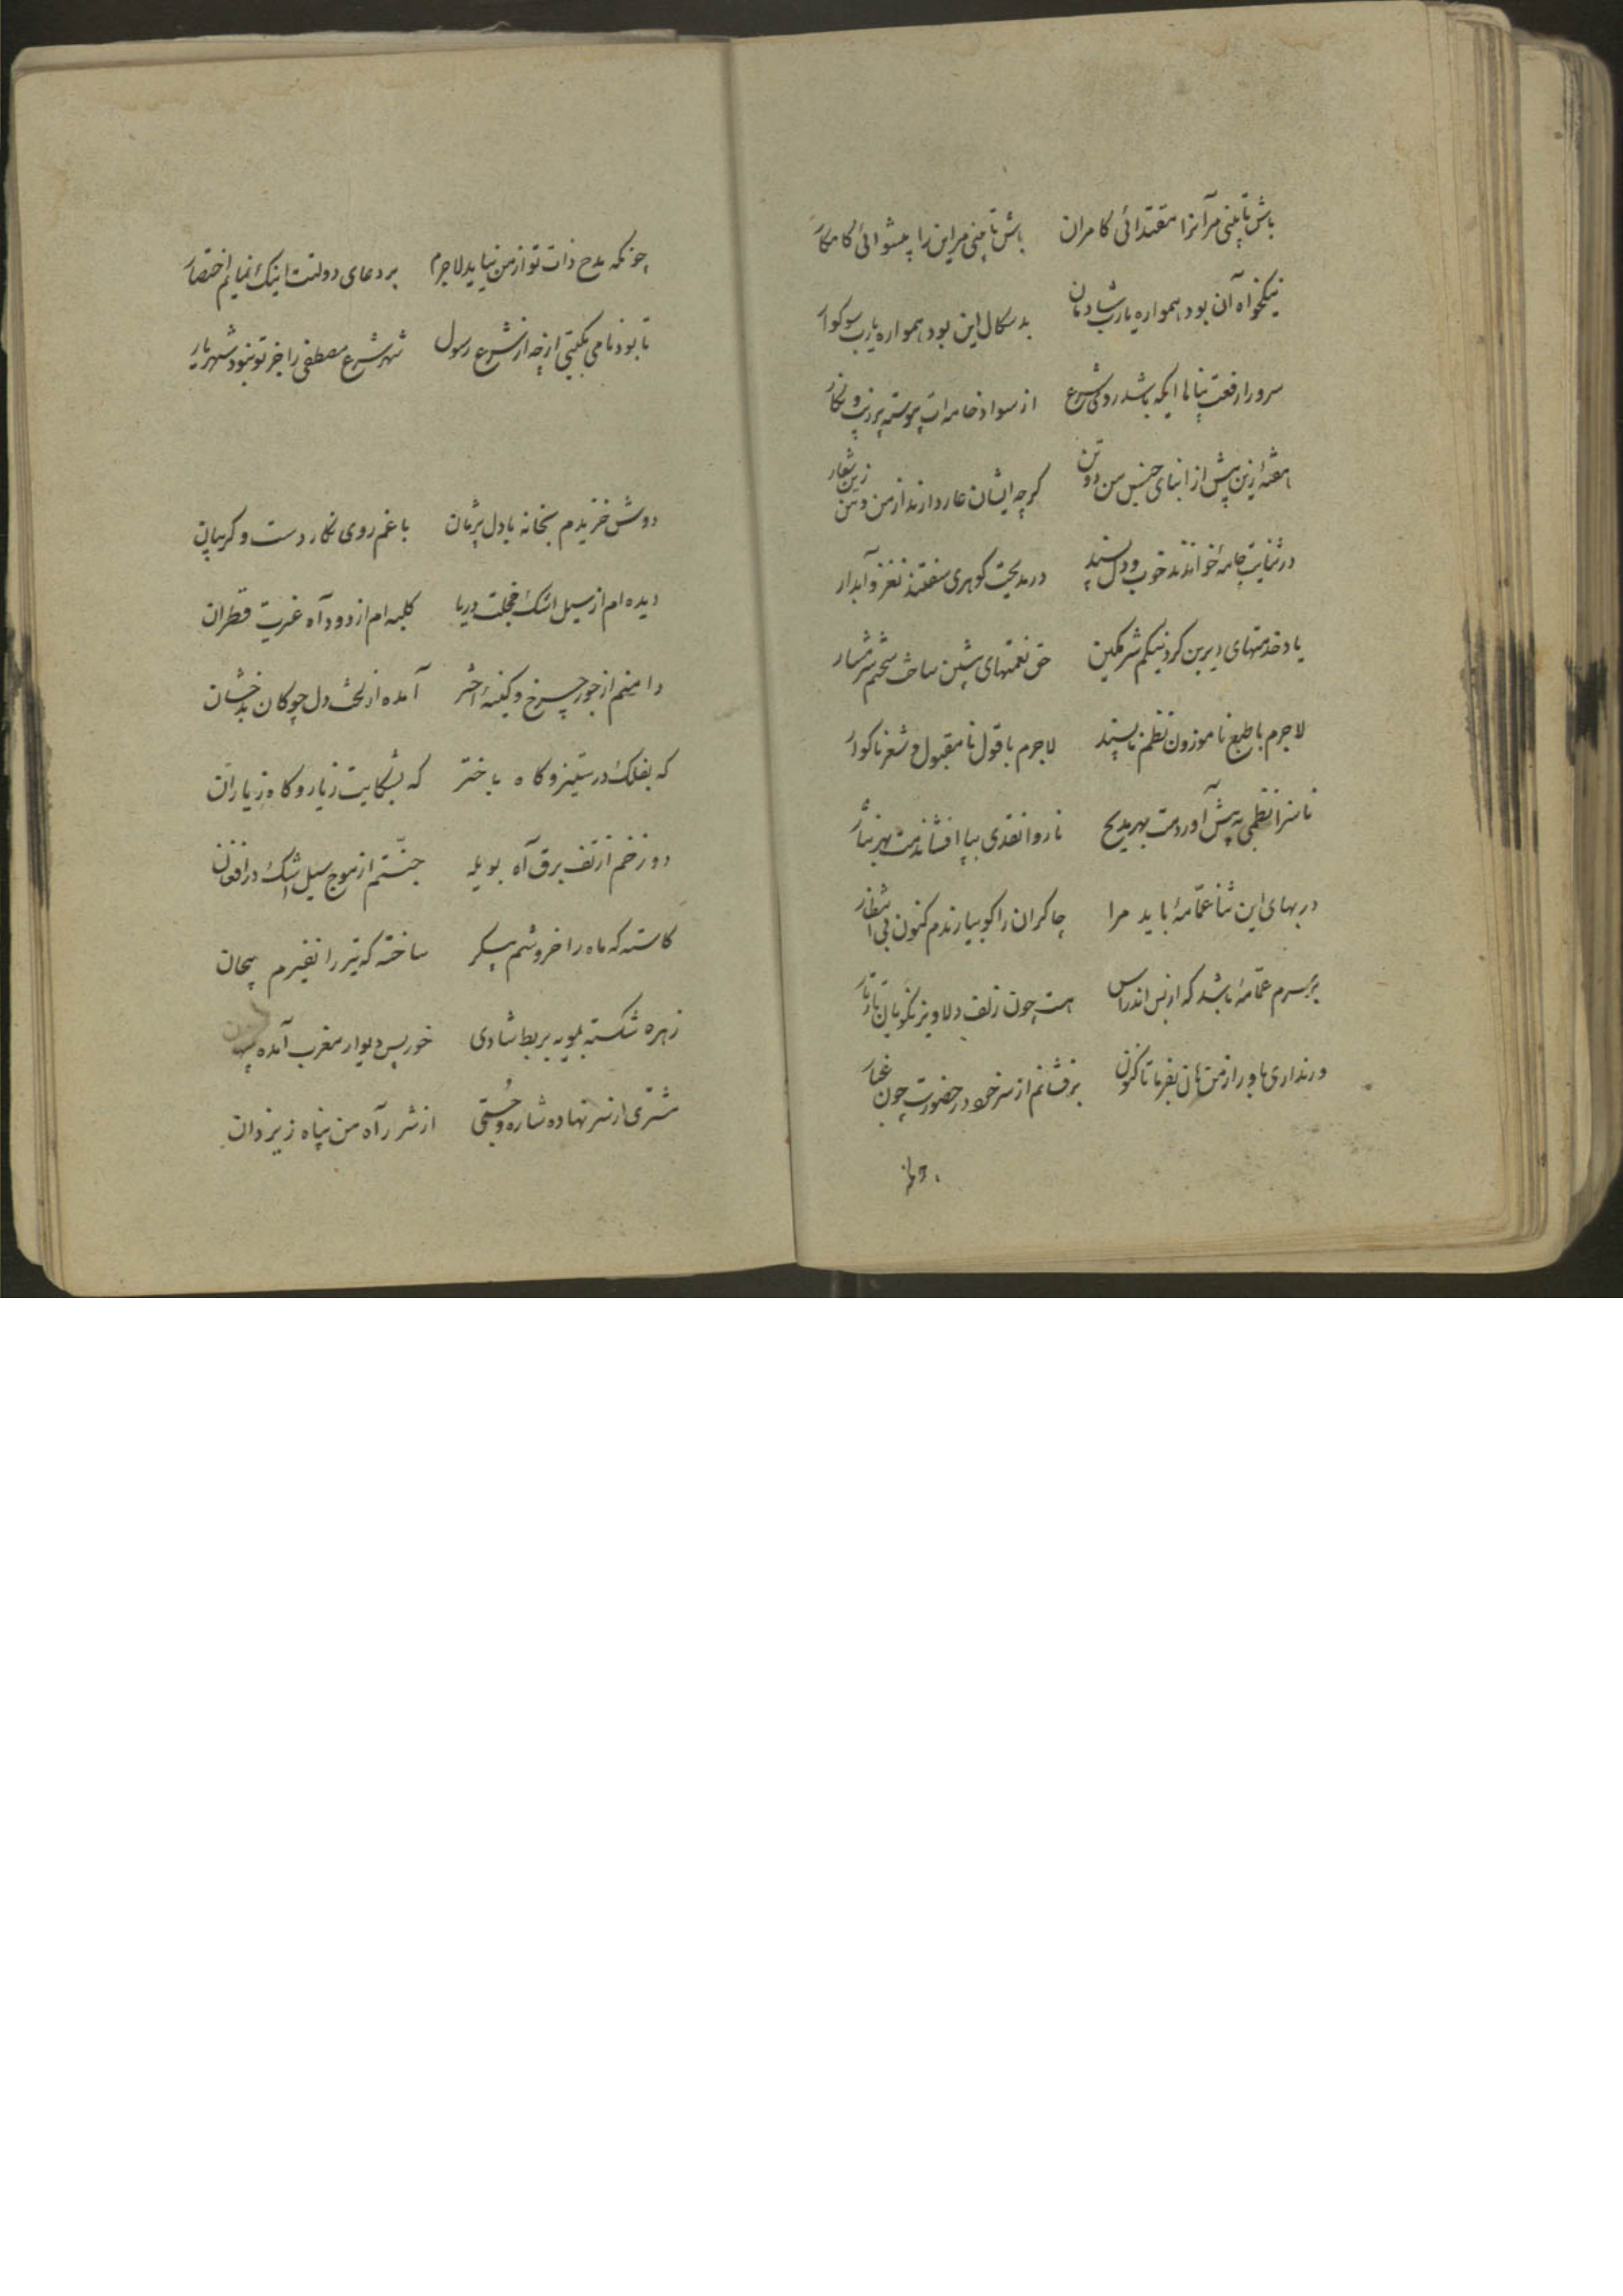 باش تا بینی مر آنرا مقتدائی کامران باش تا بینی مر این را پیشوائی کامکار
نیکخواه آن بود همواره یارب شادمان بدسکال این بود همواره یارب سوکوار
سرورا رفعت پناها ایکه باشد روی شرع از سواد خامه ات پیوسته پر زیب و نکار
هفتهٔ زین پیش از ابنای جنس من دو تن کرچه ایشان عار دارند از من و من زین شعار
در ثنایت چامهٔ خواندند خوب و دلپسند در مدیحت کوهری سفتند نغز و آبدار
یاد خدمتهای دیرین کرد نیکم شرمکین حق نعمتهای پیشین ساخت سختم شرمسار
لاجرم با طبع ناموزون نظم ناپسند لاجرم با قول نامقبول و شعر ناکوار
ناسزا نظمی به پیش آوردمت بهر مدیح ناروا نقدی بپا افشاندمت بهر نثار
در بهای این ثنا عمّامهٔ باید مرا چاکران را کو بیارندم کنون بی انتظار
بر سرم عمّامهٔ باشد که از بس اندراس هست چون زلف دلاویز نکویان تار تار
ور نداری باور از من هان بفرما تا کنون برفشانم از سر خود در حضورت چون غبار
چونکه مدح ذات تو از من نیاید لاجرم بر دعای دولتت اینک نمایم اختصار
تا بود نامی بکیتی از چه از شرع رسول شهر شرع مصطفی را جز تو نبود شهریار
دوش خزیدم بخانه با دل پژمان با غم روی نکار دست و کریبان
دیده ام از سیل اشک خجلت دریا کلبه ام از دود آه غیرت قطران
دامنم از جور چرخ و کینهٔ اختر آمده از لخت دل چو کان بدخشان
که بفلک در ستیز و کاه باختر که بشکایت ز یار و کاه ز یاران
دوزخم از تف برق آه بویله جنّتم از موج سیل اشک در افغان
کاسته که ماه را خروشم پیکر ساخته که تیر را نفیرم پیجان
زهره شکسته بمویه بربط شادی خور پس دیوار مغرب آمده پنهان
مشتری از سر نهاده شاره و جستی از شرر آه من پناه ز یزدان